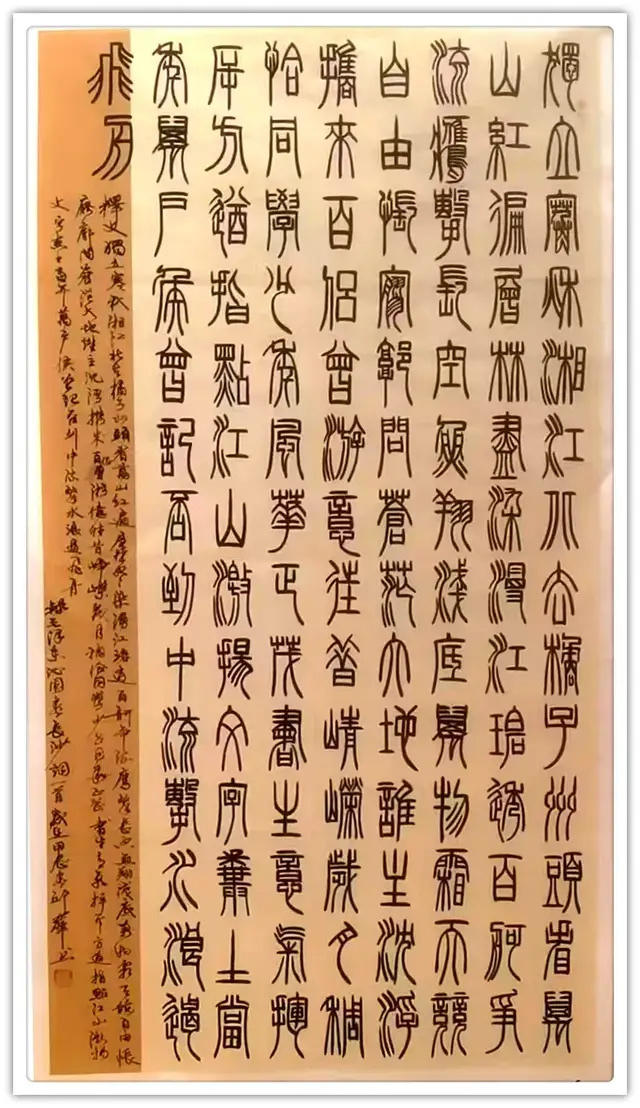 獨立寒秋湘江北去橘子州頭看萬
山紅徧層林盡染漫江碧透百舸爭
流鷹擊長空魚翔淺底萬物霜天競
自由悵寥郭問蒼茫大地誰主沈浮
攜來百侶曾游意往昔崢嶸歲月稠
恰同學少年風華正茂書生意氣揮
斥方遒指點江山激揚文字糞土當
年萬戶侯曾記否到中流擊水浪遏
飛舟
釋文獨立寒秋湘江北去橘子州頭看萬山紅遍層林盡染漫江碧透百舸爭流鷹擊長空魚翔淺底萬物霜天競自由悵
寥廓問蒼茫大地誰主沉浮携来百侶曾游憶往昔崢嶸歲月稠恰同學少年風華正茂書生意氣揮斥方遒指點江山激揚
文字糞土當年萬户侯曾記否到中流擊水浪遏飛舟
錄毛澤東沁園春長沙詞一首歲在甲辰